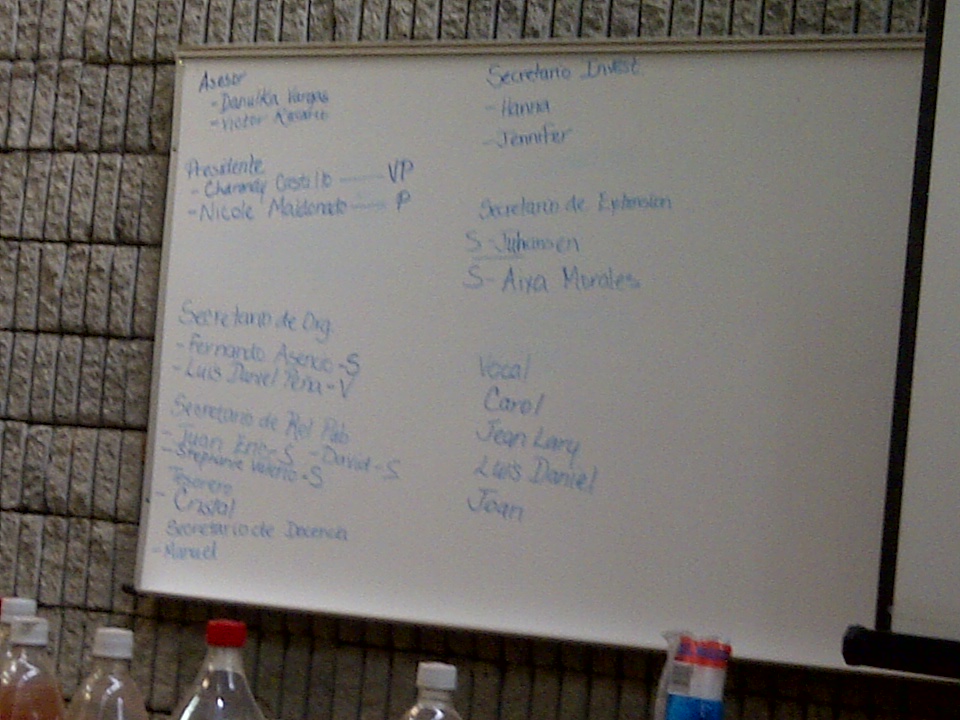 Asesor
- Danulka Vargas
- Victor Rosario
Presidente
- Charondy Castillo — VP
- Nicole Maldonado — P
Secretario de Org.
- Fernando Asencio - S
- Luis Daniel Peña - V
Secretario de Rel Pub
- Juan Eric - S - David - S
- Stephanie Valerio - S
Tesorero
- Cristal
Secretario de Docencia
- Manuel
Secretario Invest.
- Hanna
- Jennifer
Secretario de Extension
S - Juhansen
S - Aixa Morales
Vocal
Carol
Jean Lary
Luis Daniel
Joan